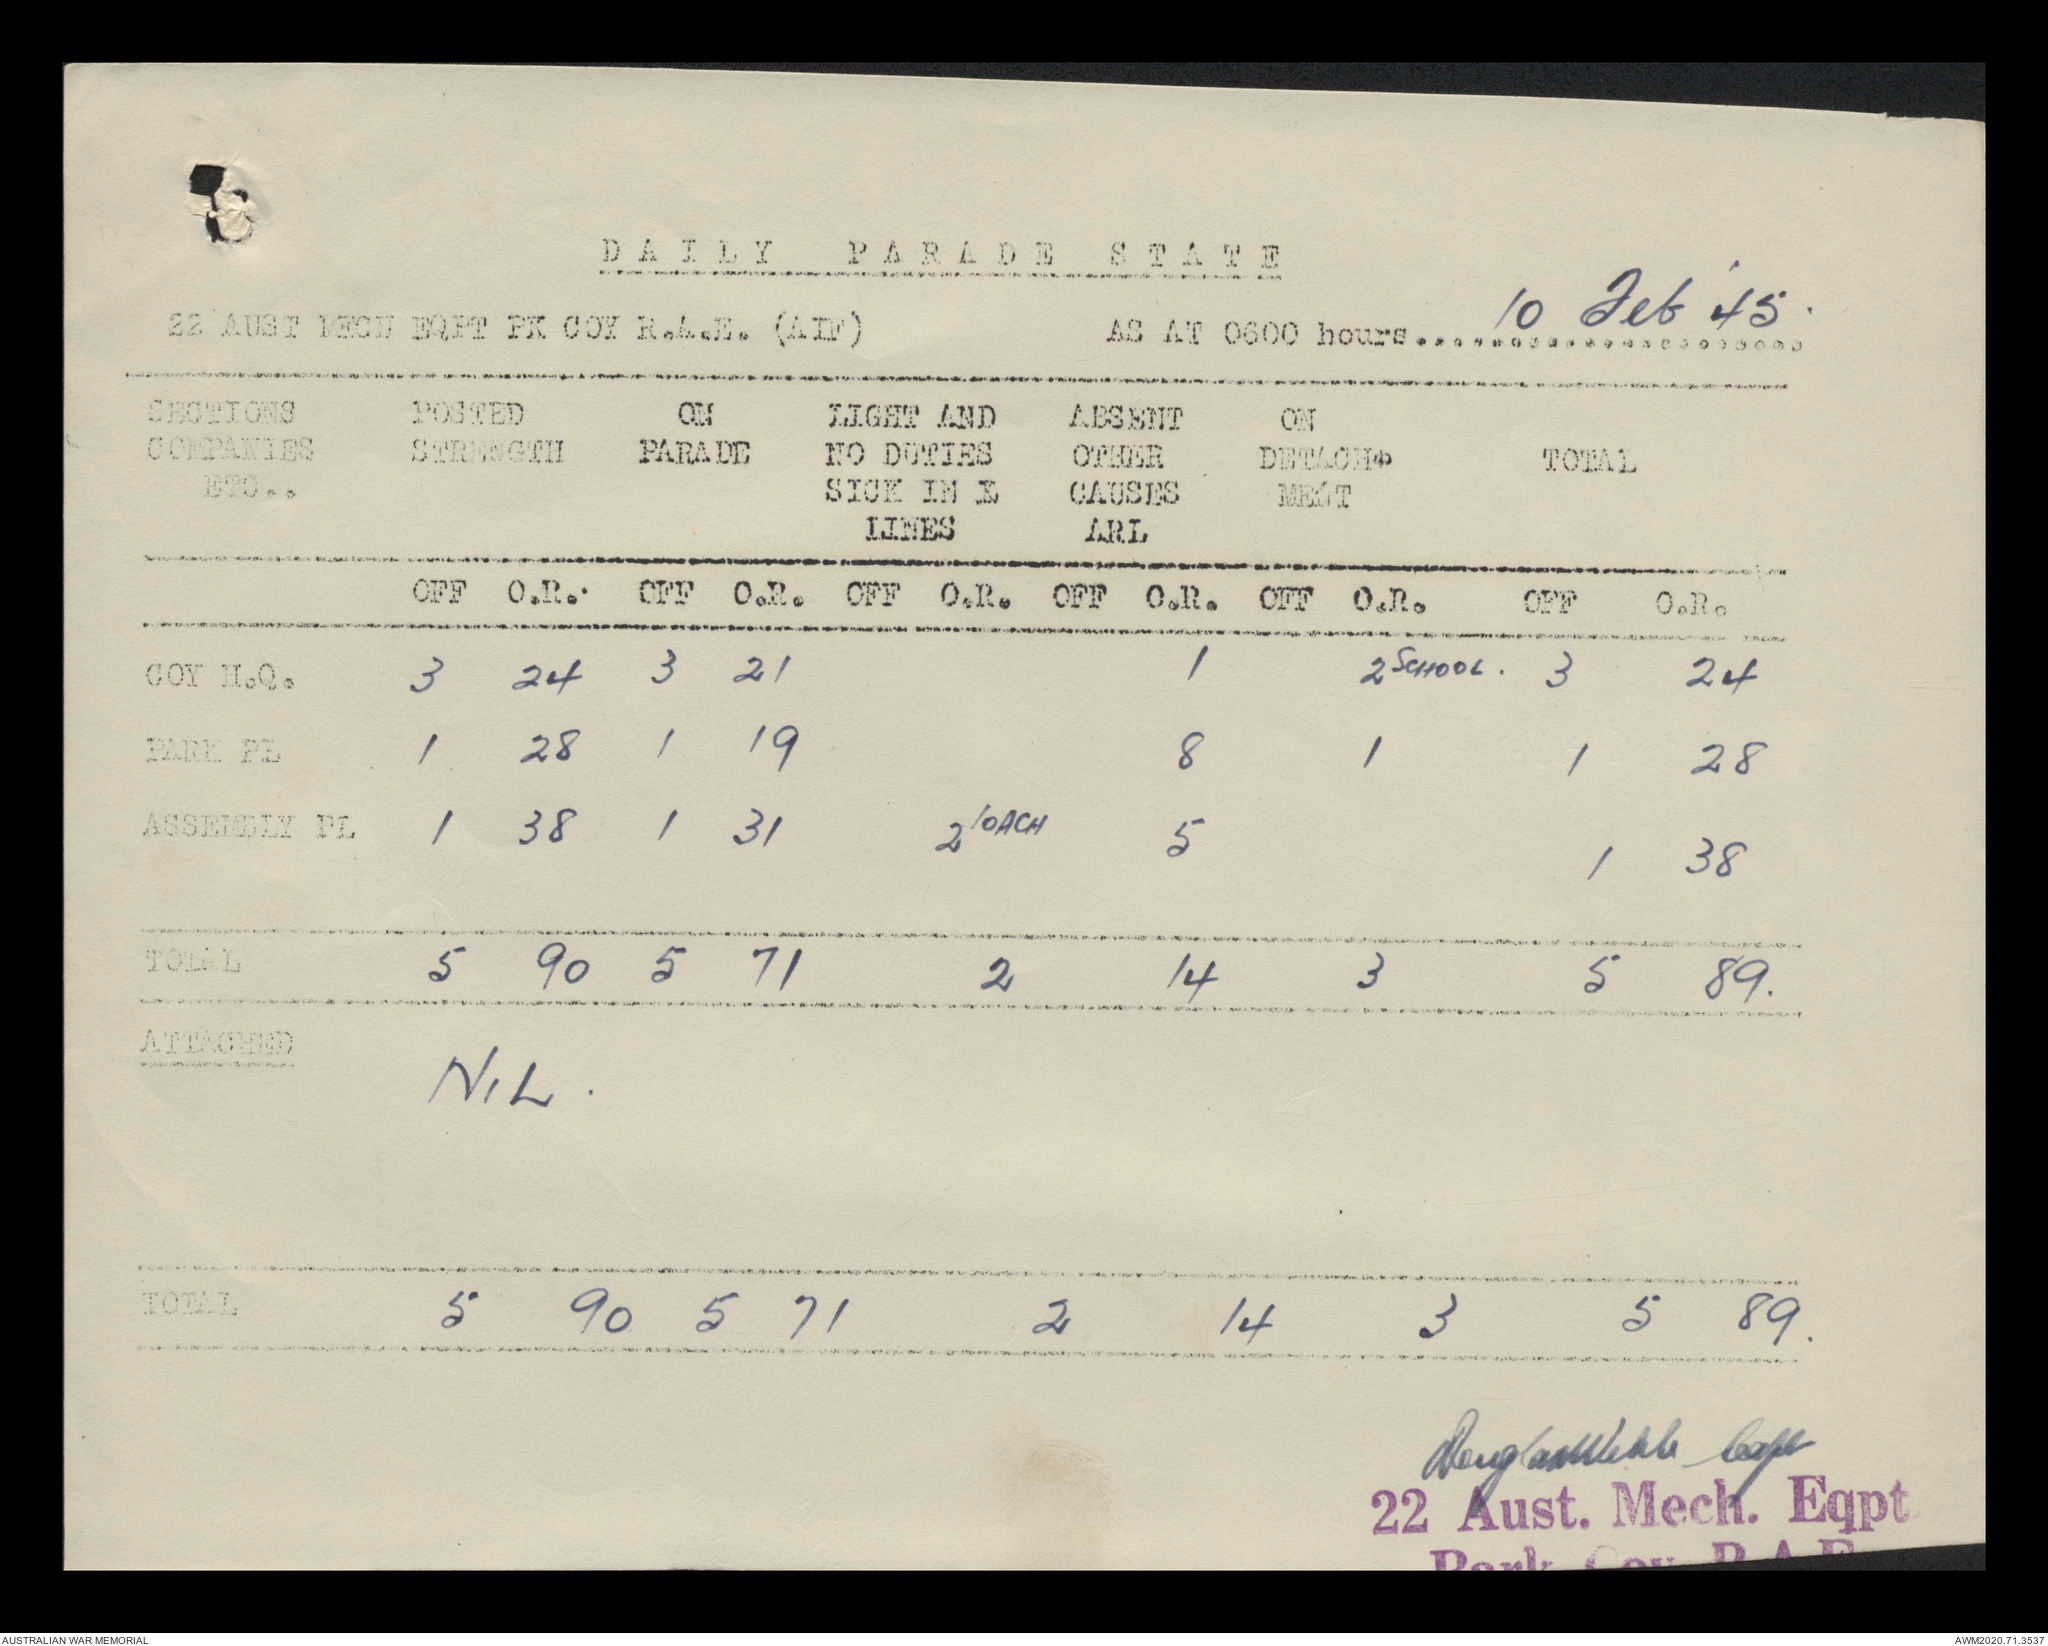 DAILY PARADE STATE
22 AUST MECH EQPT PK COY R.A.E. (AIF) AS AT 0600 hours 10 Feb '45.
SECTIONS POSTED ON LIGHT AND ABSENT ON
COMPANIES STRENGTH PARADE NO DUTIES OTHER DETACH TOTAL
ETC.. SICK IN CAUSES MENT
LINES ARL
OFF O.R. OFF O.R. OFF O.R. OFF O.R. OFF O.R. OFF O.R.
COY H.Q. 3 24 3 21 1 2 SCHOOL. 3 24
PARK PL 1 28 1 19 8 1 1 28
ASSEMBLY PL 1 38 1 31 2 10ACH 5 1 38
TOTAL 5 90 5 71 2 14 3 5 89.
ATTACHED
NIL.
TOTAL 5 90 5 71 2 14 3 5 89.
Capt
22 Aust. Mech. Eqpt.
Park Coy R.A.E.
AUSTRALIAN WAR MEMORIAL AWM2020.71.3537